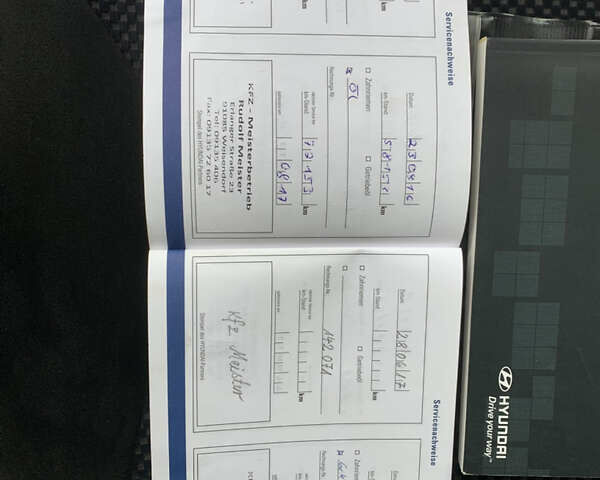 Servicenachweise
Datum
23 08 16
km-Stand
km
Zahnriemen
Getriebeöl
Öl
Rechnungs-Nr.
nächster Service bei
km-Stand
77 153 km
08 17
KFZ - Meisterbetrieb
Rudolf Meister
Erlanger Straße 23
91085 Weisendorf
Tel. 09135 406
Fax: 09135 72 60 17
Stempel des HYUNDAI-Partners
Servicenachweise
Datum
28 06 17
km-Stand
km
Zahnriemen
Getriebeöl
Rechnungs-Nr.
142 071
nächster Service bei
km-Stand
km
Kfz Meister
Stempel des HYUNDAI-Partners
HYUNDAI
Drive your way™